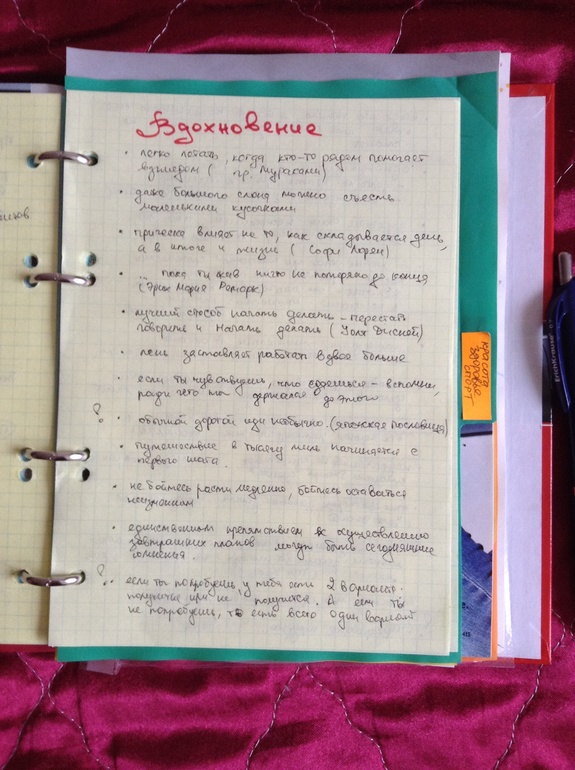 Вдохновение
• легко летать, когда кто-то рядом помогает
взлётом ( гр. Мураками)
• даже большого слона можно съесть
маленькими кусочками
• прическа влияет на то, как складывается день,
а в итоге и жизнь ( Софи Лорен)
• ... пока ты жив ничто не потеряно до конца
(Эрих Мария Ремарк)
• лучший способ начать делать – перестать
говорить и начать делать ( Уолт Дисней)
• лень заставляет работать вдвое больше
• если ты чувствуешь, что сдаёшься – вспомни,
ради чего ты держался до этого
• обычной дорогой иди необычно. (японская пословица)
• путешествие в тысячу миль начинается с
первого шага.
• не бойтесь расти медленно, бойтесь оставаться
неизменным
• единственным препятствием к осуществлению
завтрашних планов могут быть сегодняшние
сомнения.
• если ты попробуешь у тебя есть 2 варианта.
получится или не получится. А если ты
не попробуешь, то есть всего один вариант
красота
здоровье
спорт
ErichKrause